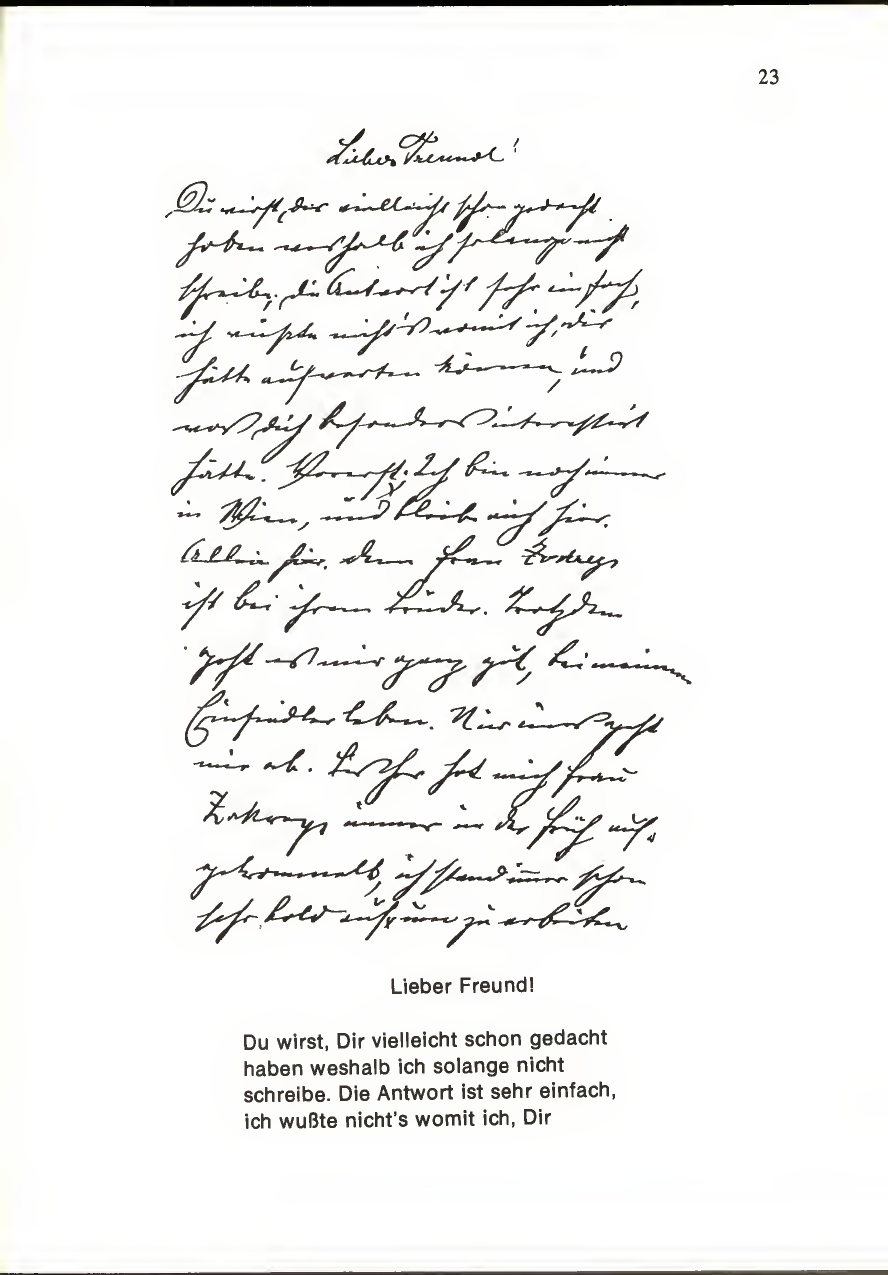 23
Lieber Freund!
Du wirst, dir vielleicht schon gedacht
haben weshalb ich solange nicht
schreibe; die Antwort ist sehr einfach,
ich wußte nicht's womit ich, dir
hätte aufwarten können, und
was dich besonders interessirt
hätte. Vorerst: Ich bin noch immer
in Wien, und bleibe auch hier.
Allein hier. denn Frau Zakreys
ist bei ihrem Bruder. Trotzdem
geht es mir ganz gut, bei meinem
Einsiedlerleben. Nur eines geht
mir ab. Bisher hat mich Frau
Zakreys immer in der früh auf-
getrommelt, ich stand immer schon
sehr bald auf um zu arbeiten
Lieber Freund!
Du wirst, Dir vielleicht schon gedacht
haben weshalb ich solange nicht
schreibe. Die Antwort ist sehr einfach,
ich wußte nicht's womit ich, Dir